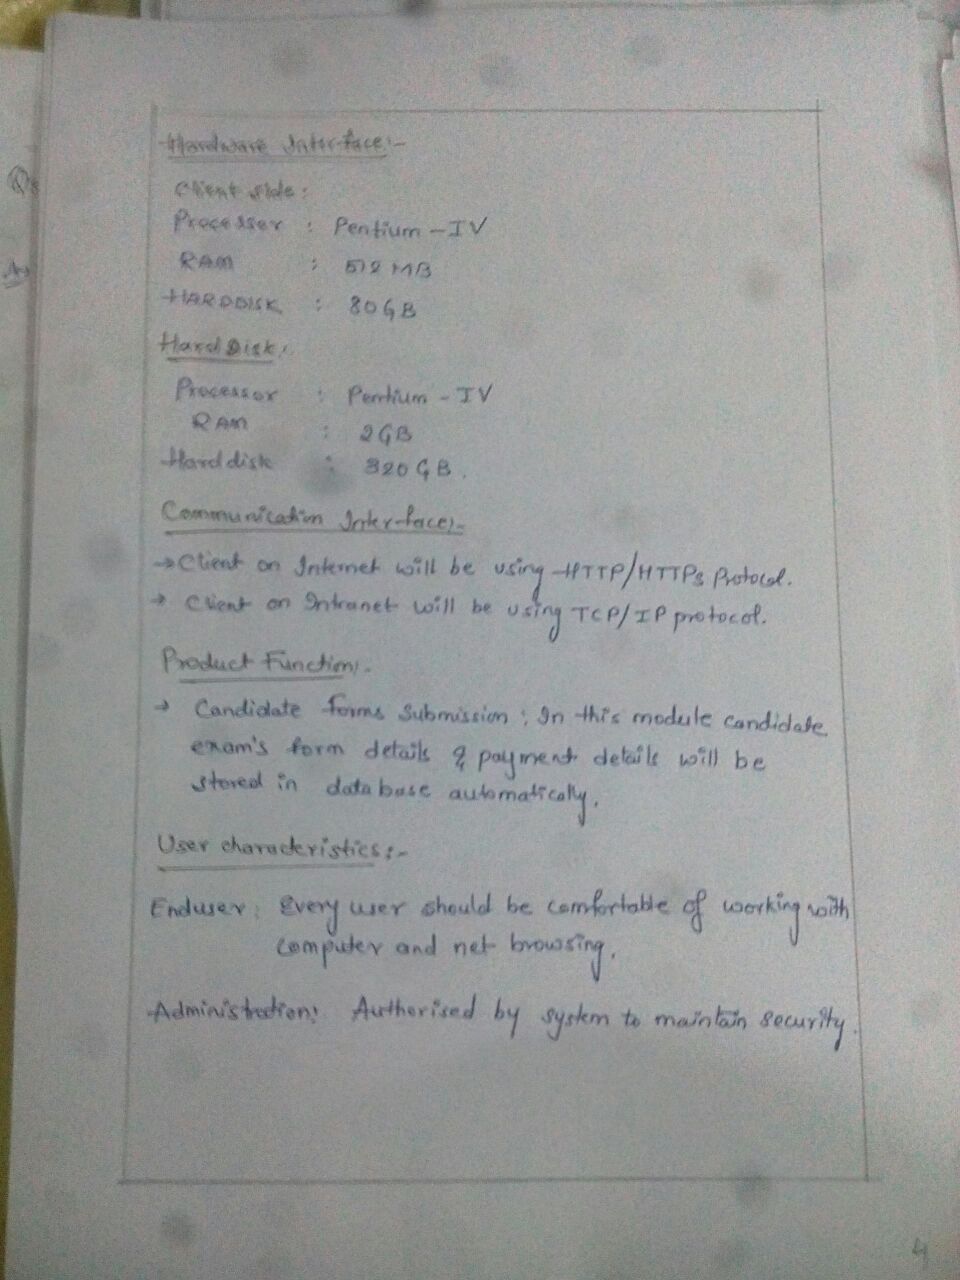 Hardware Interface:-
Client side:
Processer : Pentium-IV
RAM : 512 MB
HARDDISK : 80GB
Hard Disk:
Processor : Pentium-IV
RAM : 2GB
Hard disk : 320 GB.
Communication Interface:-
→ Client on Internet will be using HTTP/HTTPs Protocol.
→ Client on Intranet will be using TCP/IP protocol.
Product Function:-
→ Candidate forms submission : In this module candidate
exam's form details & payment details will be
stored in data base automatically.
User characteristics:-
Enduser: Every user should be comfortable of working with
computer and net browsing.
Administration: Authorised by system to maintain security.
4